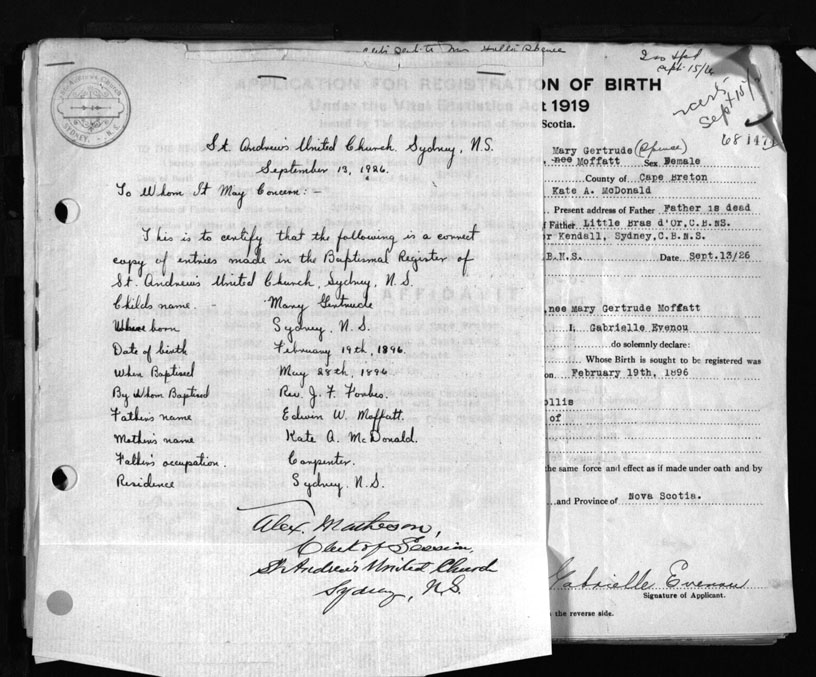 St. Andrew's United Church. Sydney, N.S.
September 13, 1926.
To Whom It May Concern:-
This is to certify that the following is a correct
copy of entries made in the Baptismal Register of
St. Andrew's United Church, Sydney, N.S.
Child's name. Mary Gertrude
Where born Sydney, N.S.
Date of birth February 19th, 1896.
When Baptised May 28th, 1896.
By Whom Baptised Rev. J. F. Forbes.
Father's name Edwin W. Moffatt.
Mother's name Kate A. McDonald.
Father's occupation. Carpenter.
Residence Sydney, N.S.
Alex. Matheson,
Clerk of Session,
St Andrew's United Church
Sydney, N.S.
ON OF BIRTH
t 1919
Scotia.
Sept 15/26
68147
Mary Gertrude (Spence)
nee Moffatt Sex Female
County of Cape Breton
Kate A. McDonald
Present address of Father Father is dead
f Father Little Bras d'Or, C.B.NS.
r Kendall, Sydney, C.B.N.S.
B.N.S. Date Sept.13/26
,nee Mary Gertrude Moffatt
I, Gabrielle Evenou
do solemnly declare:
Whose Birth is sought to be registered was
on February 19th, 1896
ollis
of
the same force and effect as if made under oath and by
and Province of Nova Scotia.
Gabrielle Evenou
Signature of Applicant.
the reverse side.